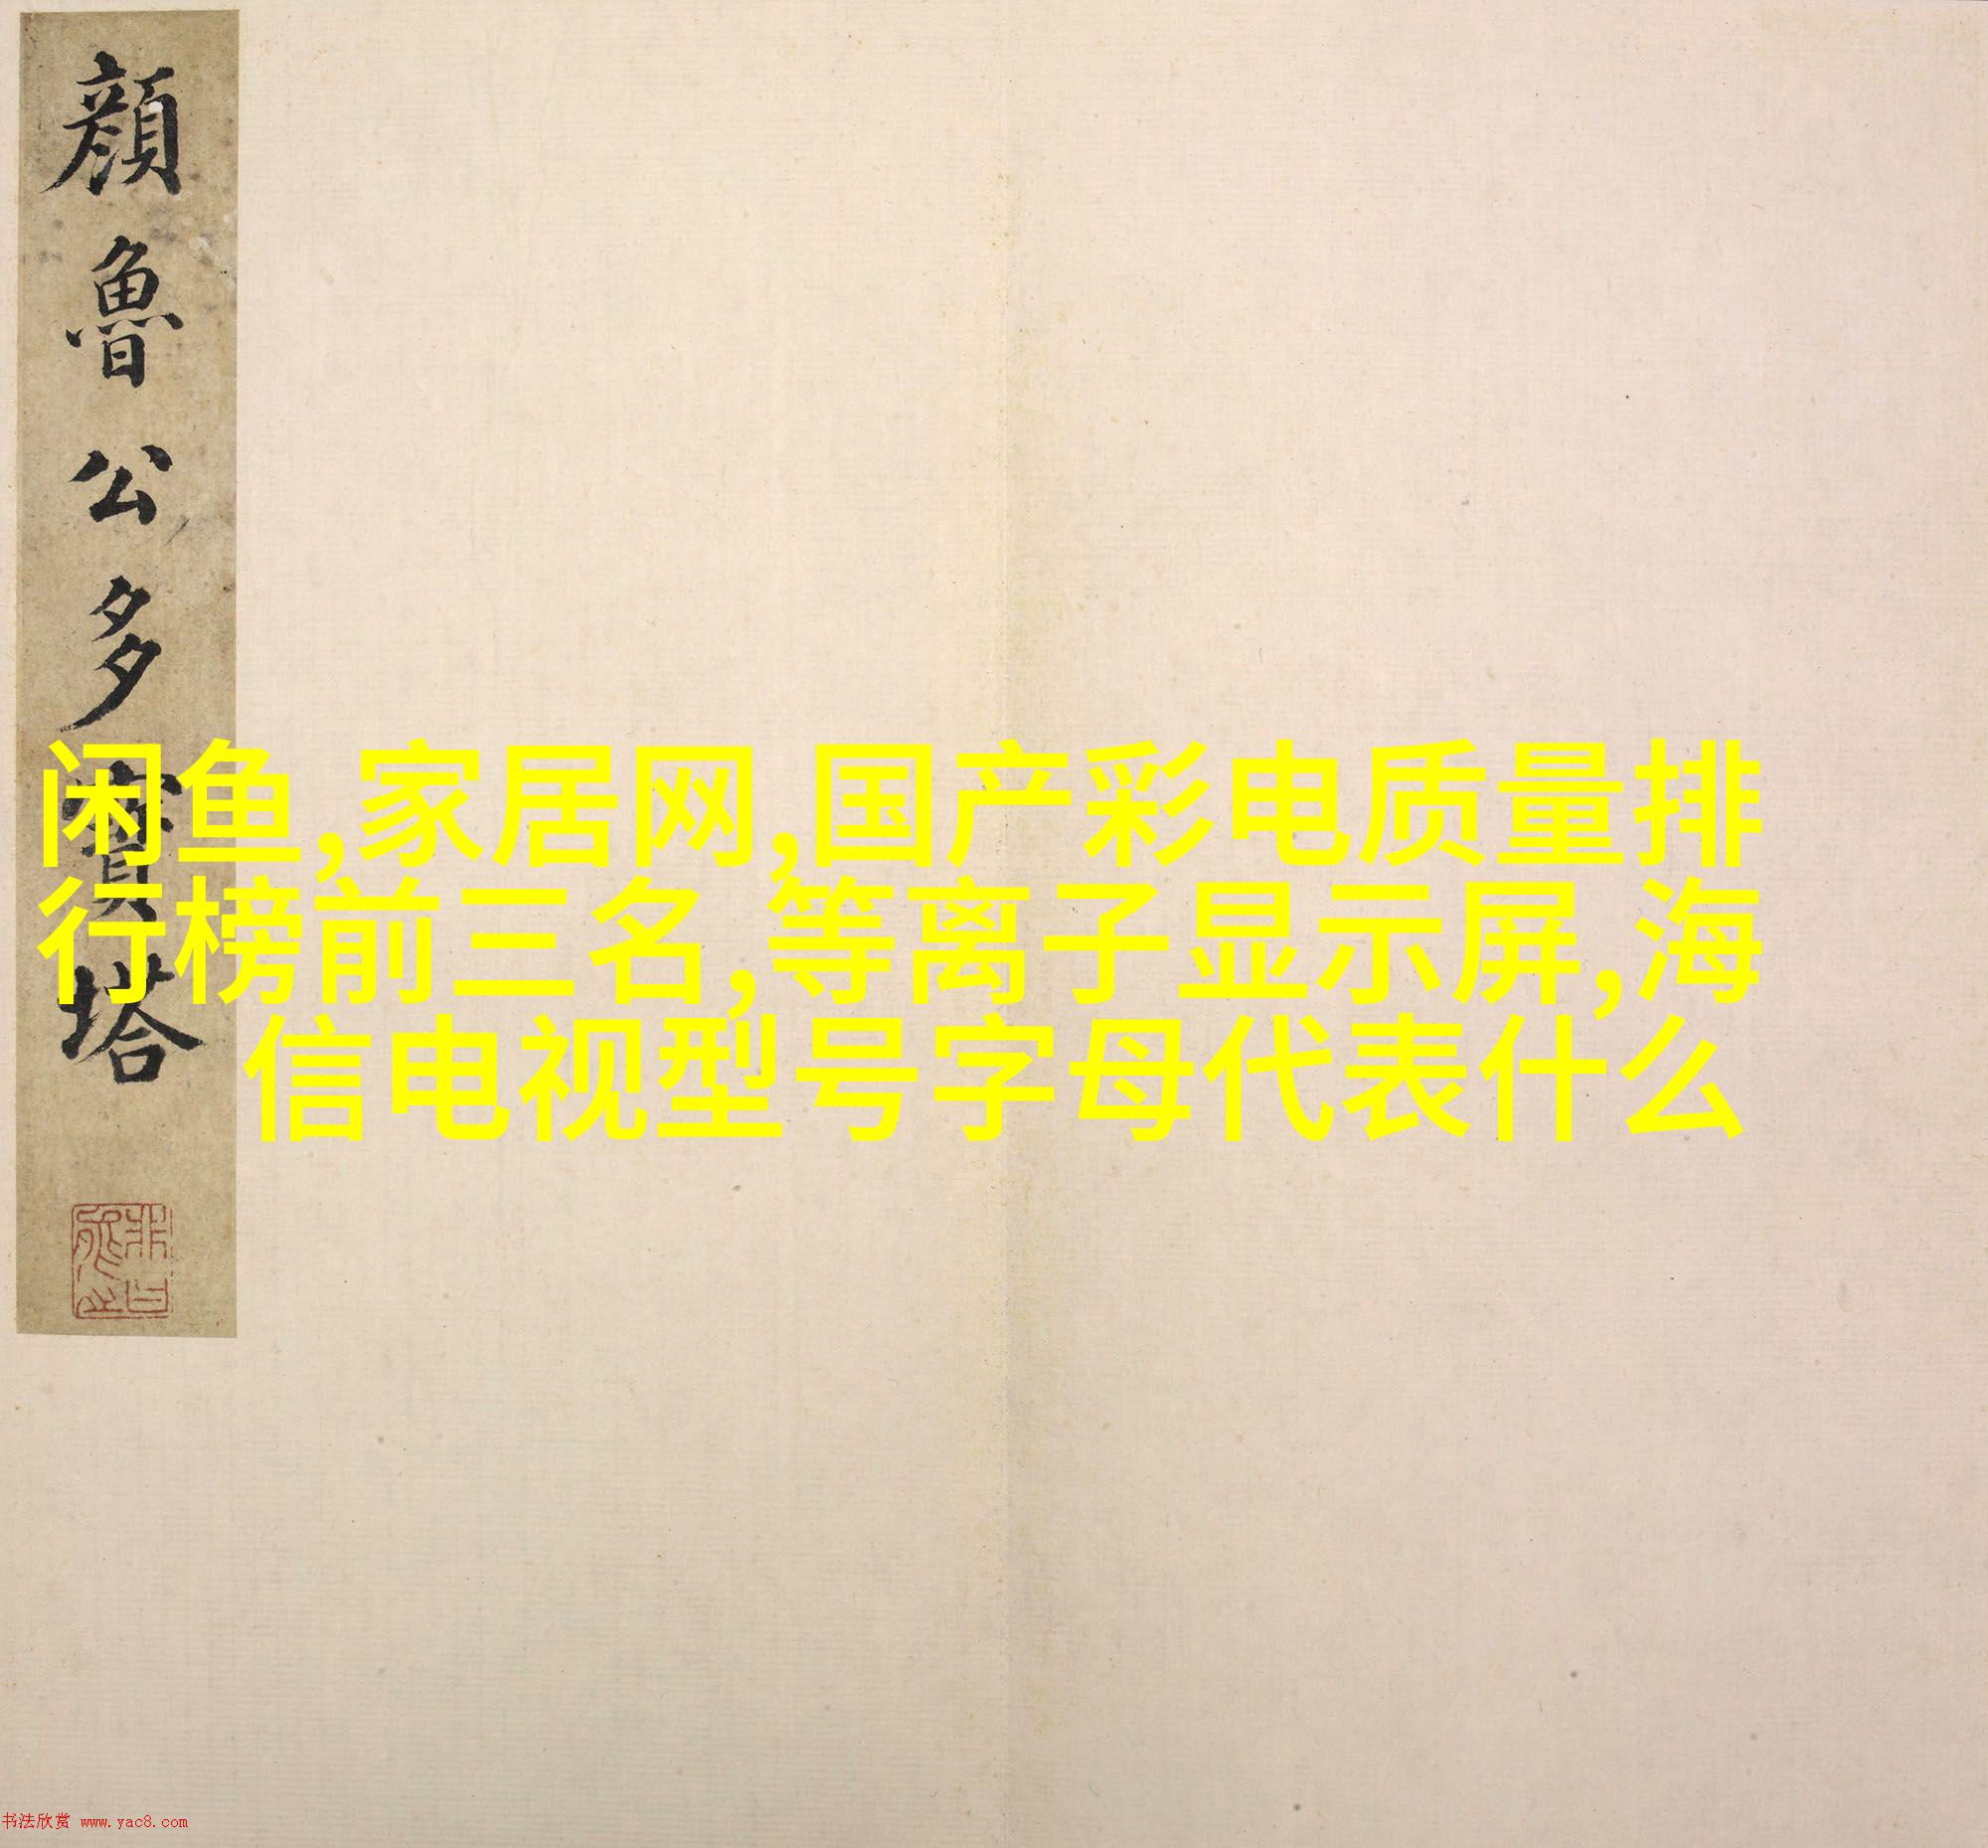 顔魯公多寶塔
闲鱼,家居网,国产彩电质量排
行榜前三名,等离子显示屏,海
信电视型号字母代表什么
书法欣赏 www.yac8.com